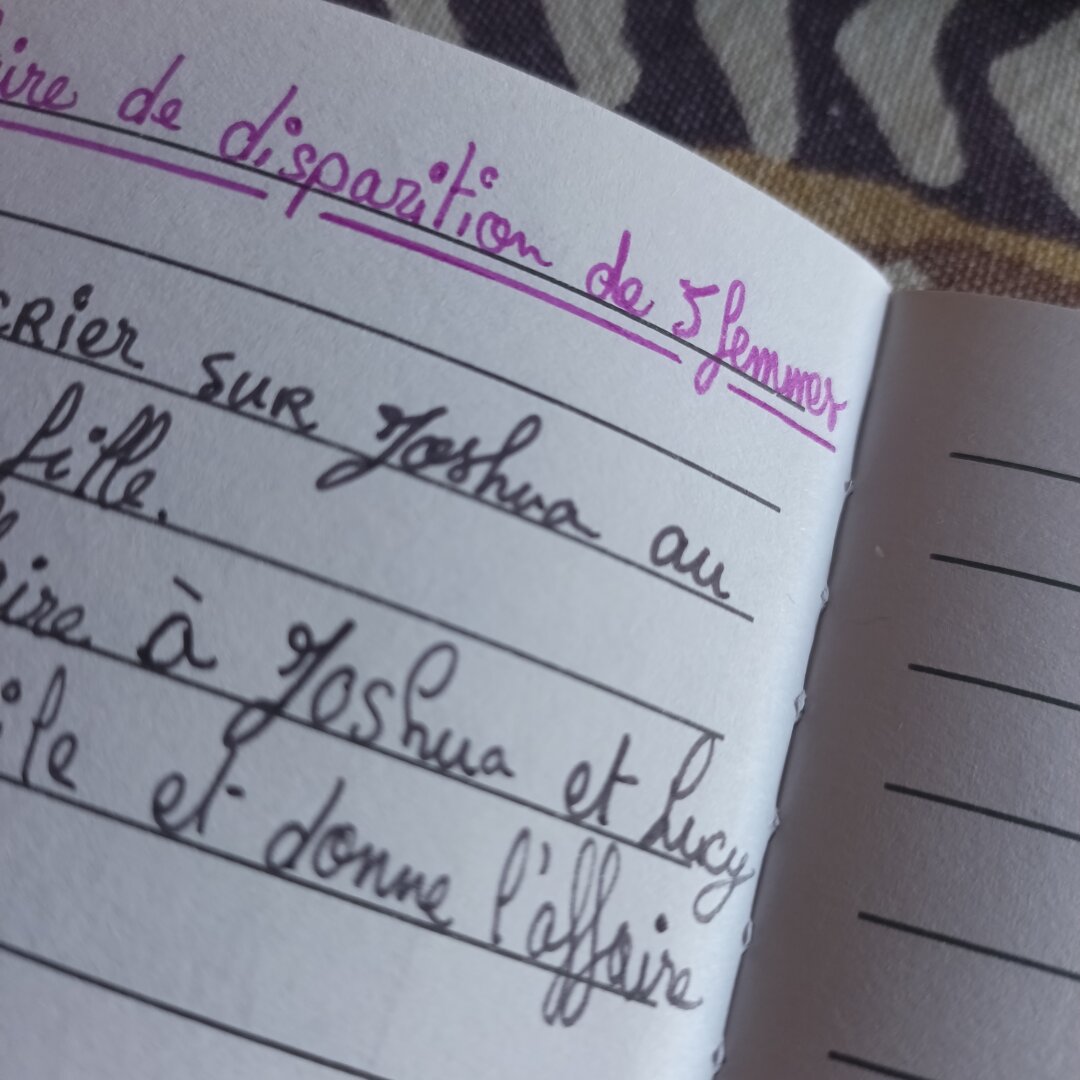 ire de disparition de 5 femmes
crier sur Joshua au
fille.
ire à Joshua et Lucy
ile et donne l'affaire